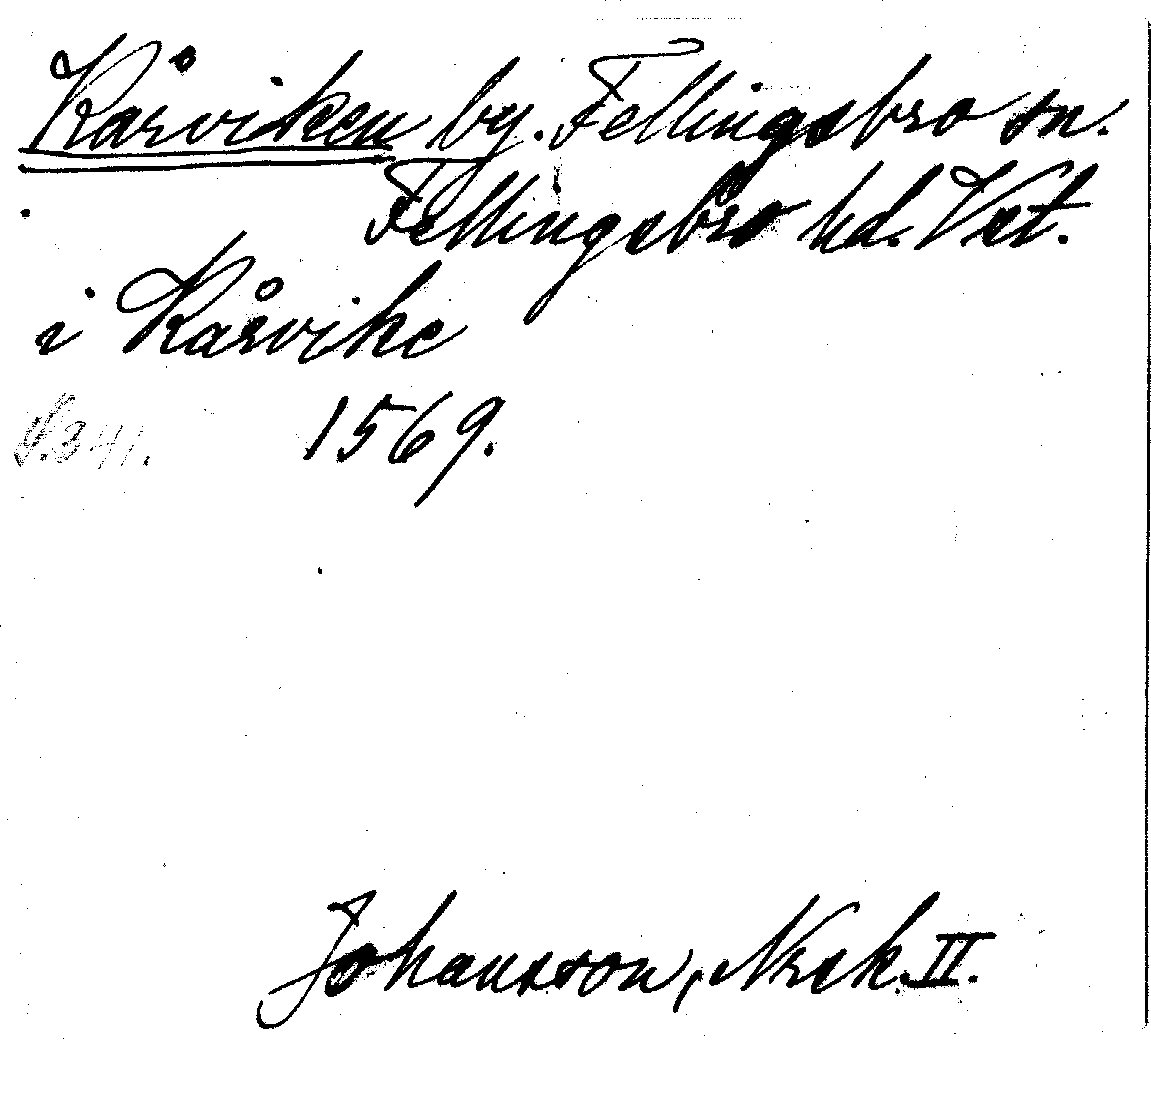 Kårviken by. Fellingsbro sn.
Fellingsbro hd. Vst.
i Kårvike
S. 341. 1569.
Johansson, Nrsk. II.